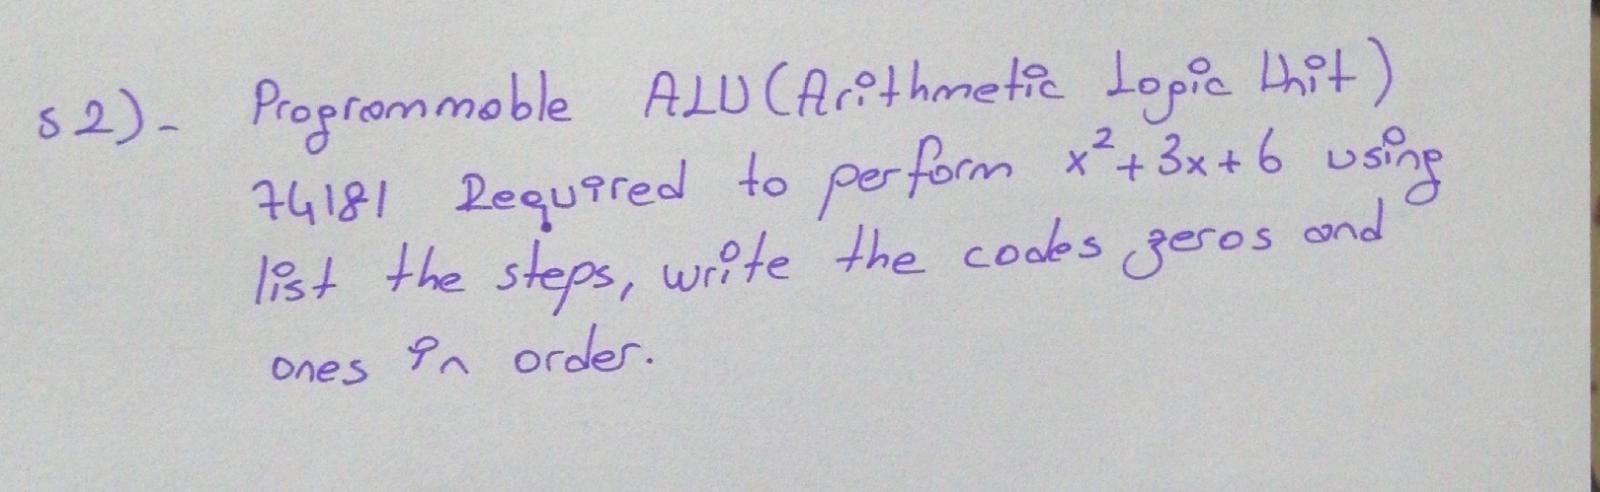 s2)- Programmable ALU (Arithmetic Logic Unit)
74181 Required to perform x² + 3x + 6 using
list the steps, write the codes zeros and
ones in order.